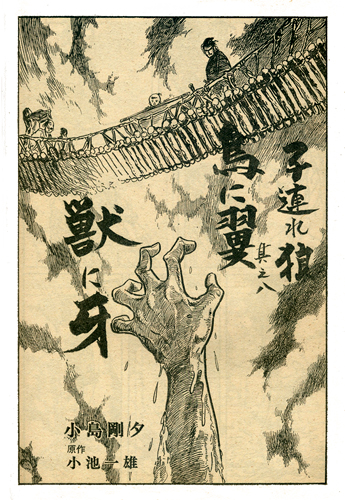 子連れ狼
其之八
鳥に翼
獣に牙
小島剛夕
原作
小池一雄